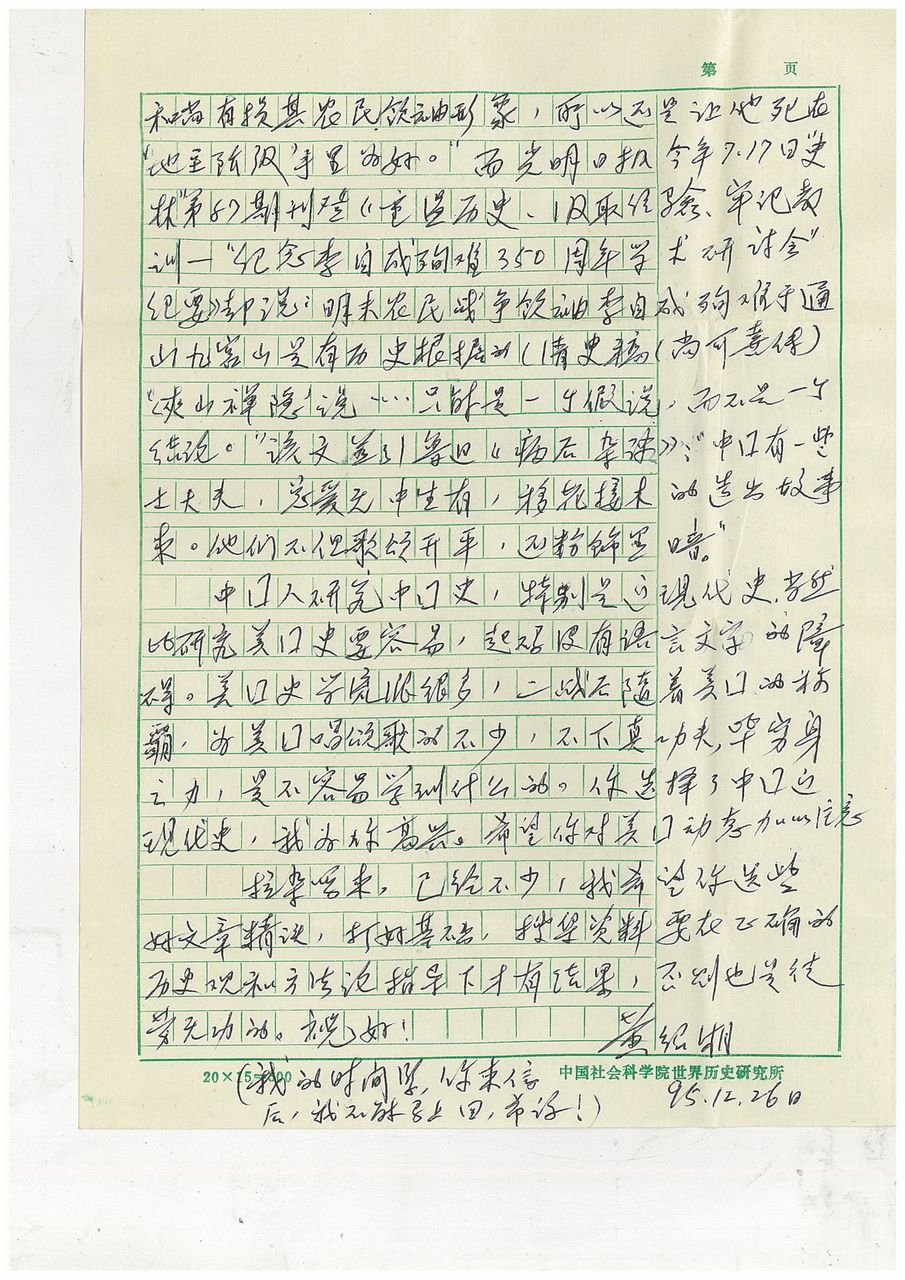 第 页
和尚有损其农民领袖形象，所以还是让他死在
“地主阶级”手里为好。”而光明日报今年7.17日“史
林”第67期刊登《重温历史、汲取经验、牢记教
训—“纪念李自成殉难350周年学术研讨会”
纪要》却说：明末农民战争领袖李自成殉难于通
山九宫山是有历史根据的（清史稿（尚可凭信）
“夹山禅隐”说……只能是一个假说，而不是一个
结论。“该文并引鲁迅《病后杂谈》：“中囗有一些
士大夫，总爱无中生有，移花接木的造出故事
来。他们不但歌颂升平，还粉饰黑暗。”
中囗人研究中囗史，特别是近现代史，当然
比研究美囗史要容易，起码没有语言文字的障
碍。美囗史学流派很多，二战后随着美囗的称
霸，为美囗唱颂歌的不少，不下真功夫，毕穷身
之力，是不容易学到什么的。你选择了中囗近
现代史，我为你高兴。希望你对美囗动态加以注意
拉杂写来，已经不少，我希望你选些
好文章精读，打好基础，搜集资料要在正确的
历史观和方法论指导下才有结果，否则也是徒
劳无功的。祝好！
黄绍湘
20×15=300 中国社会科学院世界历史研究所
（我的时间紧，你来信 95.12.26日
后，我不能马上回，希谅！）